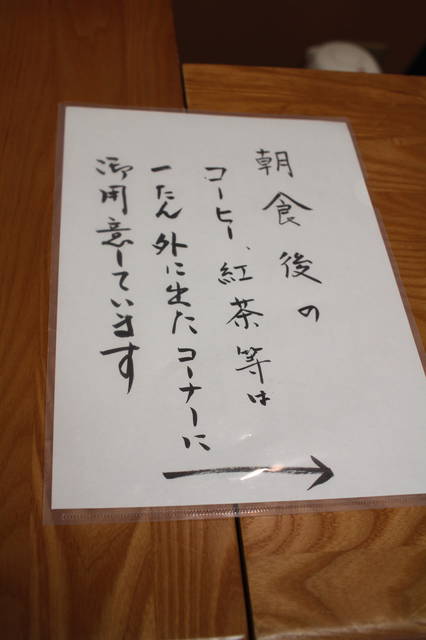 朝食後の
コーヒー、紅茶等は
一たん外に出たコーナーに
御用意しています